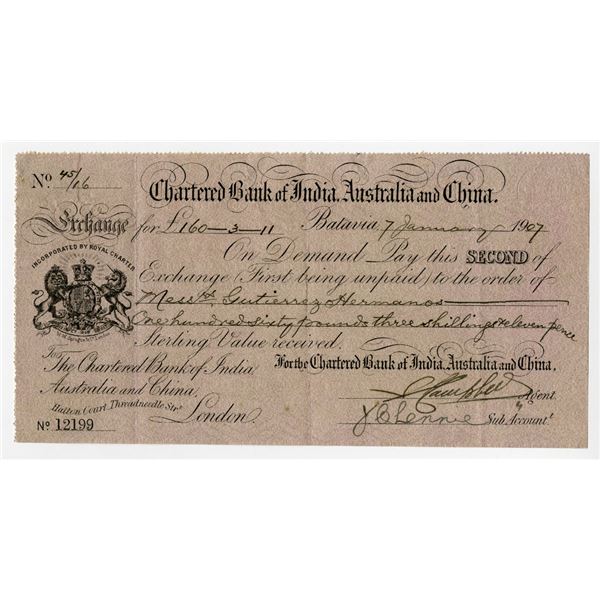 No. 45/16
Chartered Bank of India, Australia and China.
Exchange for £160—3—11 Batavia 7 January 1907
INCORPORATED BY ROYAL CHARTER
On Demand Pay this SECOND of
Exchange (First being unpaid) to the order of
Messrs. Gutierrez Hermanos
One hundred sixty pounds three shillings & eleven pence
Sterling Value received.
To
The Chartered Bank of India
Australia and China,
Hatton Court, Threadneedle Strt.
London.
For the Chartered Bank of India, Australia and China.
Campbell Agent.
J B Lennie Sub Accountt.
No. 12199